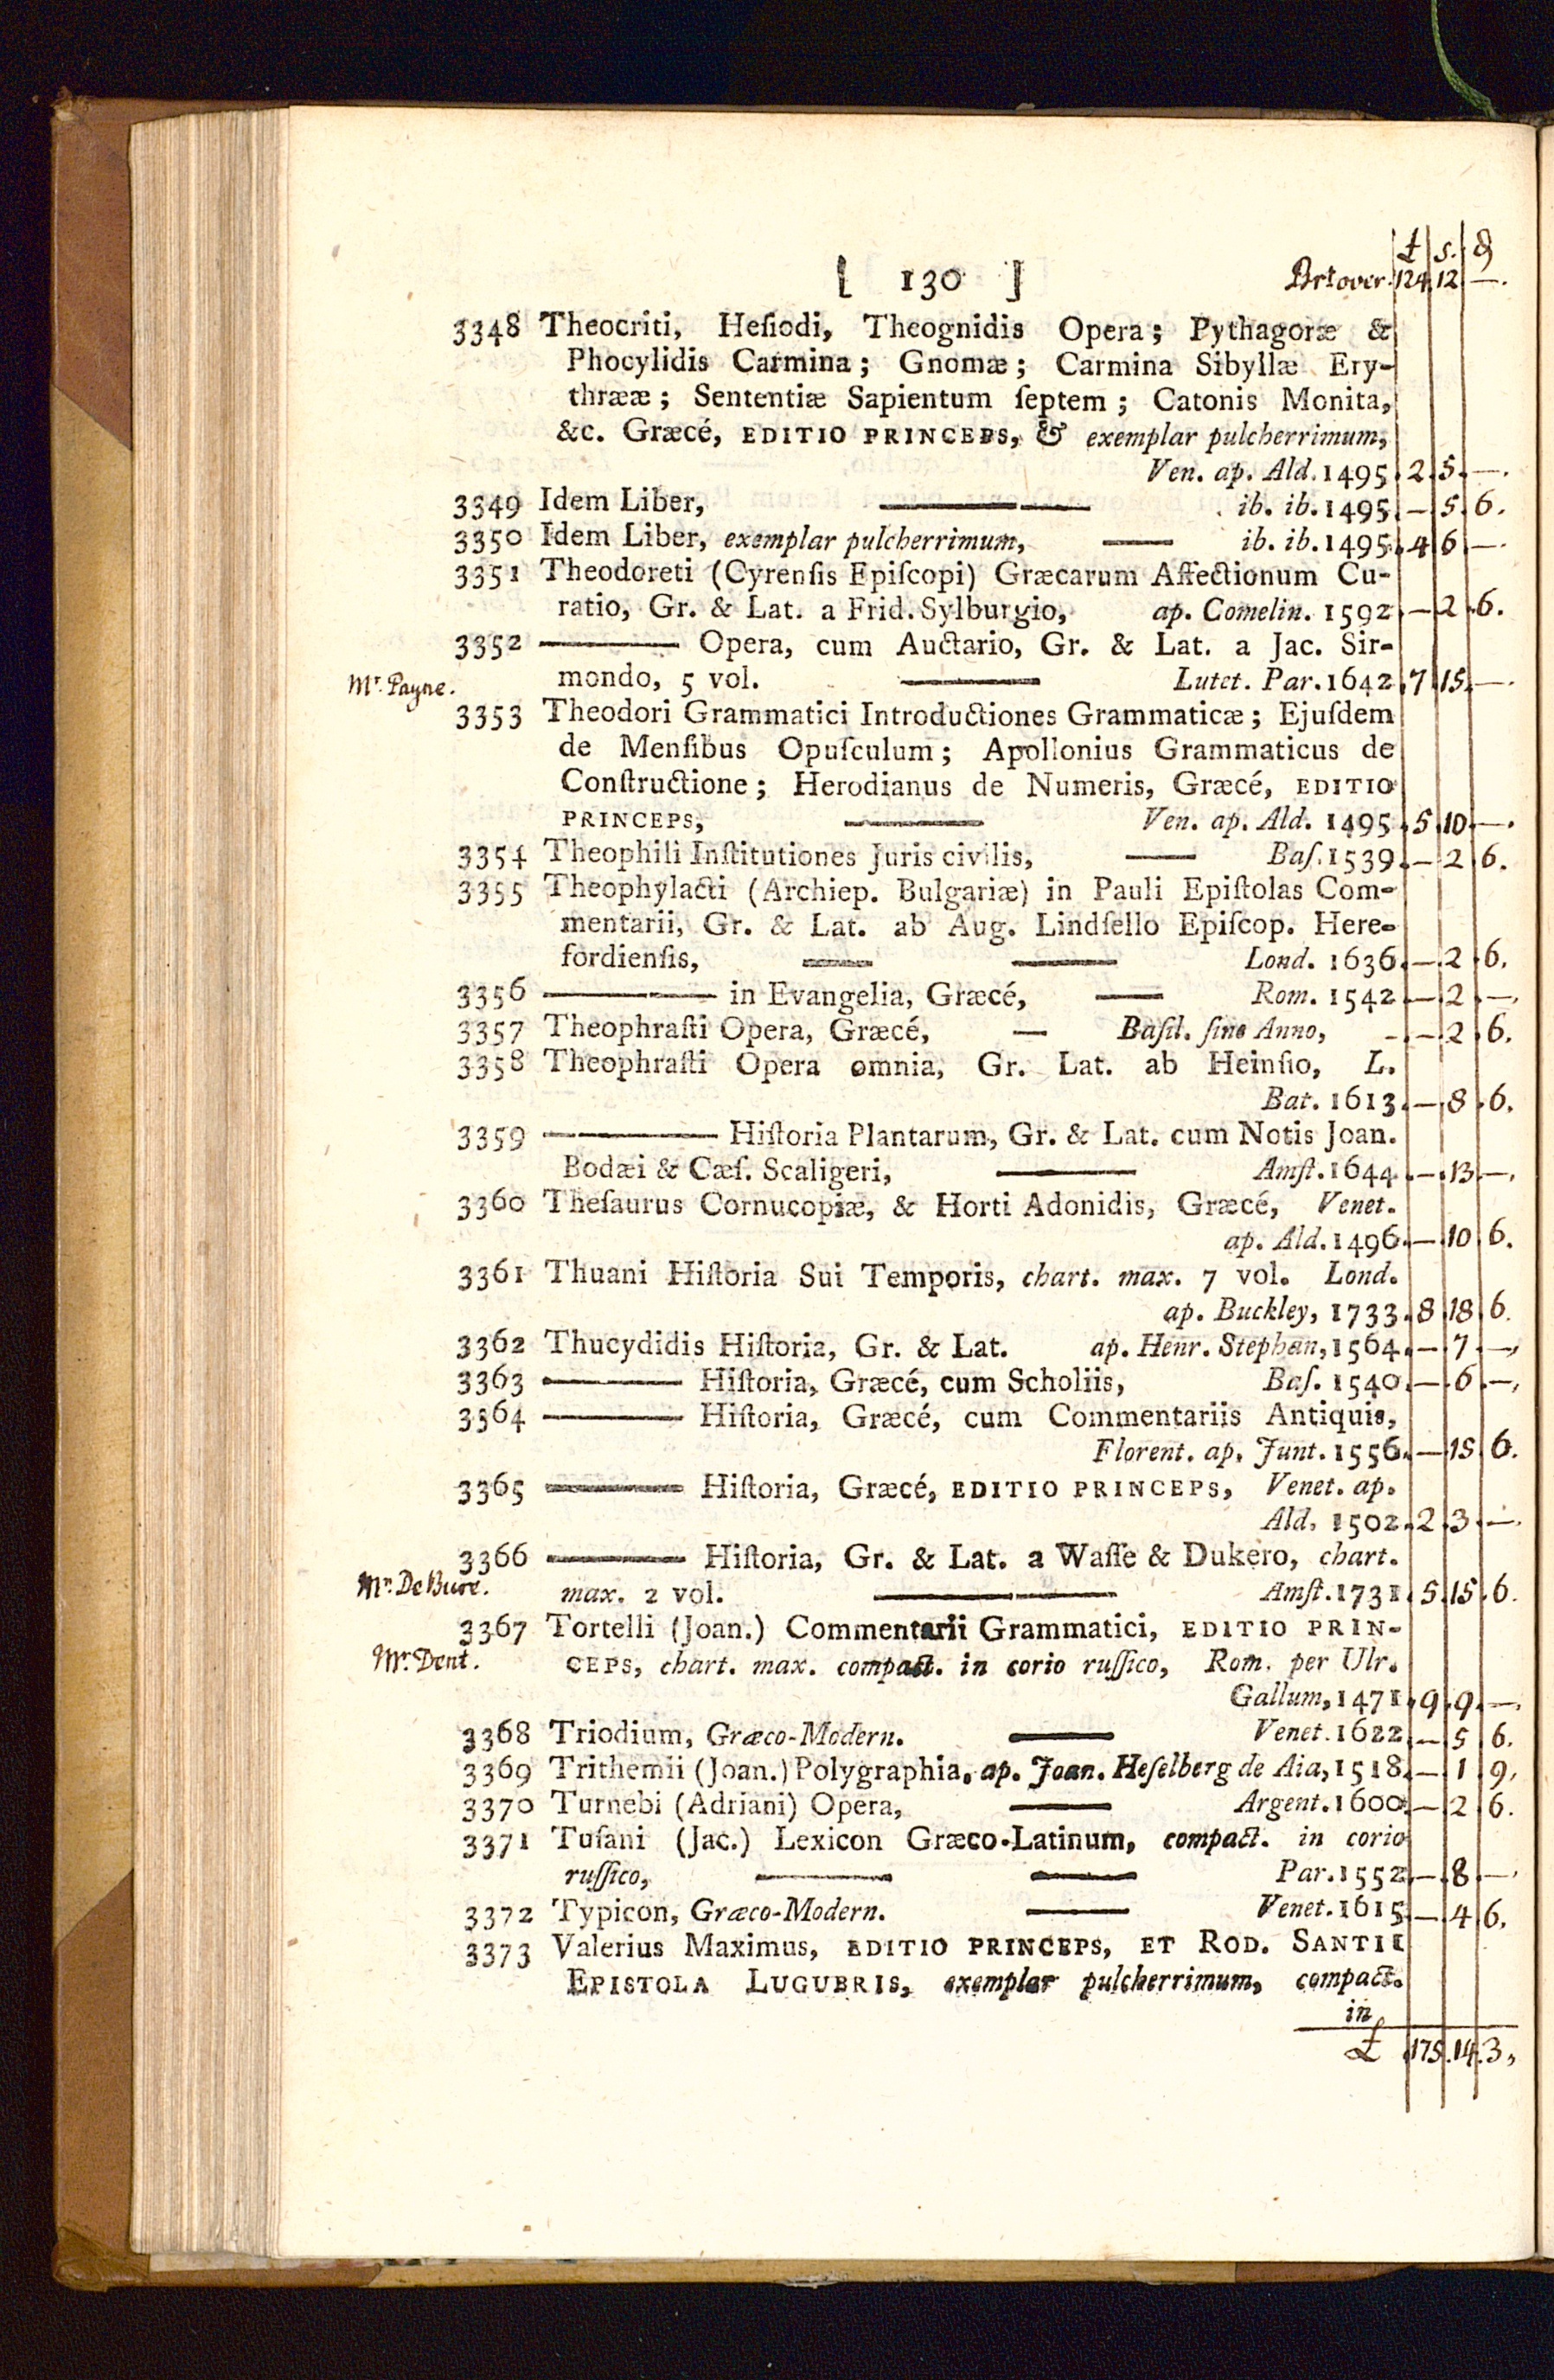 £ s. d
[ 130 ] Brt over. 124 12 —.
3348 Theocriti, Heſiodi, Theognidis Opera; Pythagoræ &
Phocylidis Carmina; Gnomæ; Carmina Sibyllæ Ery-
thrææ; Sententiæ Sapientum ſeptem; Catonis Monita,
&c. Græcé, EDITIO PRINCEPS, & exemplar pulcherrimum,
Ven. ap. Ald. 1495. 2. 5. —.
3349 Idem Liber, —— ib. ib. 1495. — 5. 6.
3350 Idem Liber, exemplar pulcherrimum, —— ib. ib. 1495. 4 6 —.
3351 Theodoreti (Cyrenſis Epiſcopi) Græcarum Affectionum Cu-
ratio, Gr. & Lat. a Frid. Sylburgio, ap. Comelin. 1592. — 2. 6.
3352 —— Opera, cum Auctario, Gr. & Lat. a Jac. Sir-
Mr. Payne. mondo, 5 vol. —— Lutet. Par. 1642. 7 15. —.
3353 Theodori Grammatici Introductiones Grammaticæ; Ejuſdem
de Menſibus Opuſculum; Apollonius Grammaticus de
Conſtructione; Herodianus de Numeris, Græcé, EDITIO
PRINCEPS, —— Ven. ap. Ald. 1495. 5. 10. —.
3354 Theophili Inſtitutiones Juris civilis, —— Baſ. 1539. — 2. 6.
3355 Theophylacti (Archiep. Bulgariæ) in Pauli Epiſtolas Com-
mentarii, Gr. & Lat. ab Aug. Lindſello Epiſcop. Here-
fordienſis, —— —— Lond. 1636. —. 2. 6.
3356 —— in Evangelia, Græcé, —— Rom. 1542. —. 2. —.
3357 Theophraſti Opera, Græcé, — Baſil. ſine Anno, - —. 2. 6.
3358 Theophraſti Opera omnia, Gr. Lat. ab Heinſio, L.
Bat. 1613. —. 8. 6.
3359 —— Hiſtoria Plantarum, Gr. & Lat. cum Notis Joan.
Bodæi & Cæſ. Scaligeri, —— Amſt. 1644. —. 13. —.
3360 Theſaurus Cornucopiæ, & Horti Adonidis, Græcé, Venet.
ap. Ald. 1496. —. 10. 6.
3361 Thuani Hiſtoria Sui Temporis, chart. max. 7 vol. Lond.
ap. Buckley, 1733. 8. 18. 6.
3362 Thucydidis Hiſtoria, Gr. & Lat. ap. Henr. Stephan, 1564. —. 7. —.
3363 —— Hiſtoria, Græcé, cum Scholiis, Baſ. 1540. —. 6. —,
3364 —— Hiſtoria, Græcé, cum Commentariis Antiquis,
Florent. ap. Junt. 1556. — 15. 6.
3365 —— Hiſtoria, Græcé, EDITIO PRINCEPS, Venet. ap.
Ald. 1502. 2. 3. —.
3366 —— Hiſtoria, Gr. & Lat. a Waſſe & Dukero, chart.
Mr. De Bure. max. 2 vol. —— Amſt. 1731. 5. 15. 6.
3367 Tortelli (Joan.) Commentarii Grammatici, EDITIO PRIN-
Mr. Dent. CEPS, chart. max. compact. in corio ruſſico, Rom. per Ulr.
Gallum, 1471. 9. 9. —.
3368 Triodium, Græco-Modern. —— Venet. 1622. — 5 6.
3369 Trithemii (Joan.) Polygraphia, ap. Joan. Heſelberg de Aia, 1518. — 1. 9,
3370 Turnebi (Adriani) Opera, —— Argent. 1600. — 2. 6.
3371 Tuſani (Jac.) Lexicon Græco-Latinum, compact. in corio
ruſſico, —— —— Par. 1552. —. 8. —.
3372 Typicon, Græco-Modern. —— Venet. 1615. —. 4 6.
3373 Valerius Maximus, EDITIO PRINCEPS, ET ROD. SANTII
EPISTOLA LUGUBRIS, exemplar pulcherrimum, compact.
in
£ 175. 14. 3,